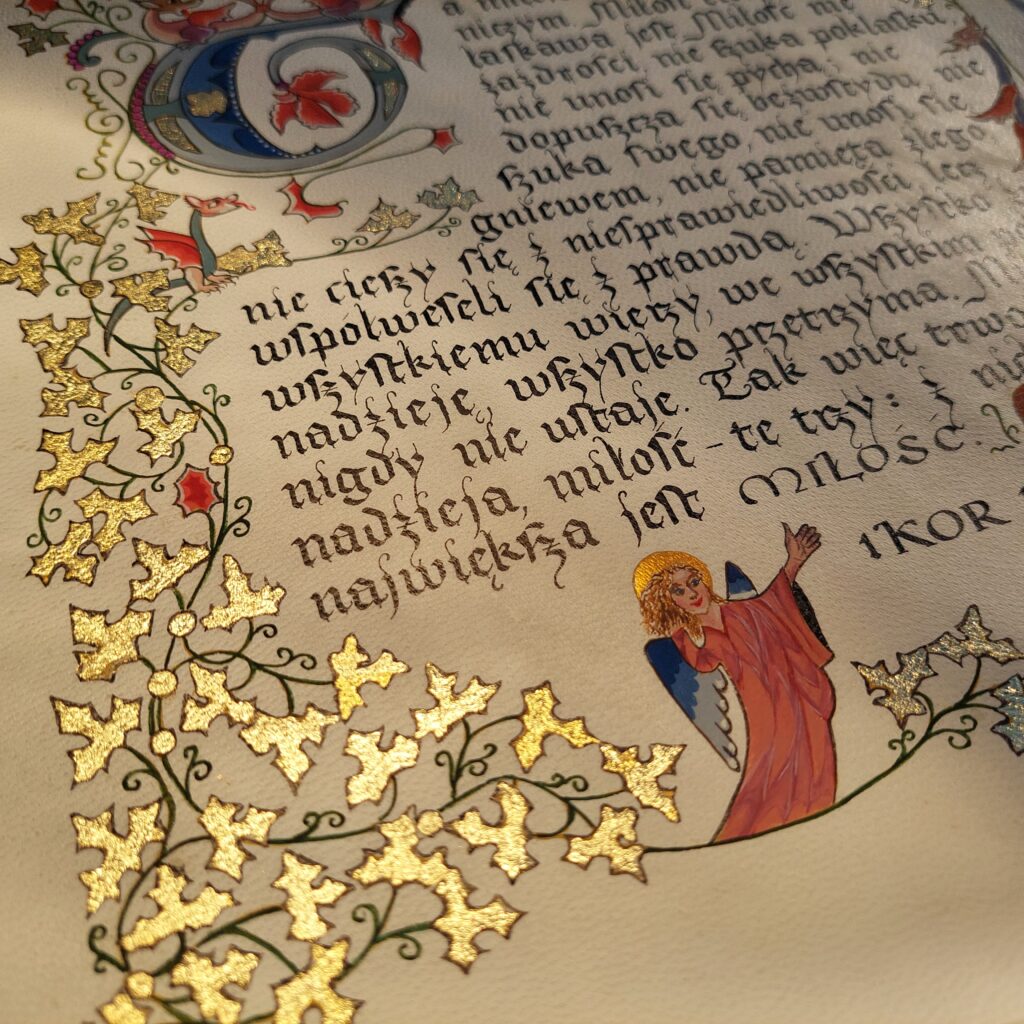 niczym. Miłość
łaskawa jest. Miłość nie
zazdrości, nie szuka poklasku,
nie unosi się pychą; nie
dopuszcza się bezwstydu, nie
szuka swego, nie unosi się
gniewem, nie pamięta złego
nie cieszy się z niesprawiedliwości lecz
współweseli się z prawdą. Wszystko
wszystkiemu wierzy, we wszystkim
nadzieję, wszystko przetrzyma.
nigdy nie ustaje. Tak więc
nadzieja, miłość – te trzy: z
największa jest MIŁOŚĆ.
1 KOR